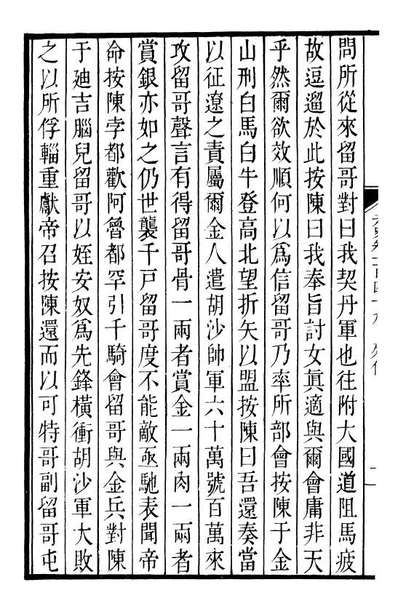 問所從來留哥對曰我契丹軍也往附大國道阻馬疲
故逗遛於此按陳曰我奉旨討女眞適與爾會庸非天
乎然爾欲效順何以爲信留哥乃率所部會按陳于金
山刑白馬白牛登高北望折矢以盟按陳曰吾還奏當
以征遼之責屬爾金人遣胡沙帥軍六十萬號百萬來
攻留哥聲言有得留哥骨一兩者賞金一兩肉一兩者
賞銀亦如之仍世襲千戸留哥度不能敵亟馳表聞帝
命按陳孛都歡阿魯都罕引千騎會留哥與金兵對陳
于廸吉腦兒留哥以姪安奴爲先鋒橫衝胡沙軍大敗
之以所俘輜重獻帝召按陳還而以可特哥副留哥屯